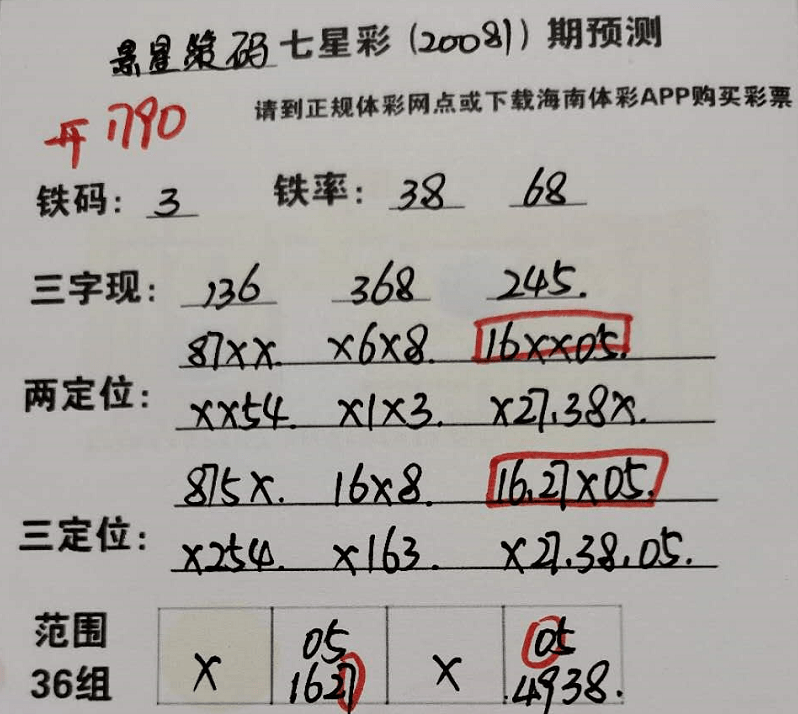 景星策码 七星彩(20081)期预测
请到正规体彩网点或下载海南体彩APP购买彩票
开1790
铁码: 3 铁率: 38 68
三字现: 136 368 245.
87XX. X6X8. 16XX05.
两定位:
XX54. X1X3. X27.38X.
875X. 16X8. 16.27X05.
三定位:
X254. X163. X27.38.05.
范围 05 05
36组 X 1627 X .4938.